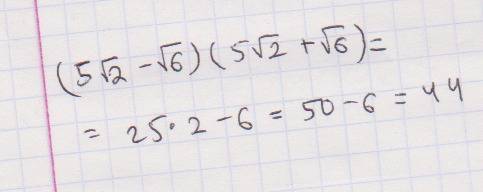 (5√2 - √6)(5√2 + √6) =
= 25·2 - 6 = 50 - 6 = 44